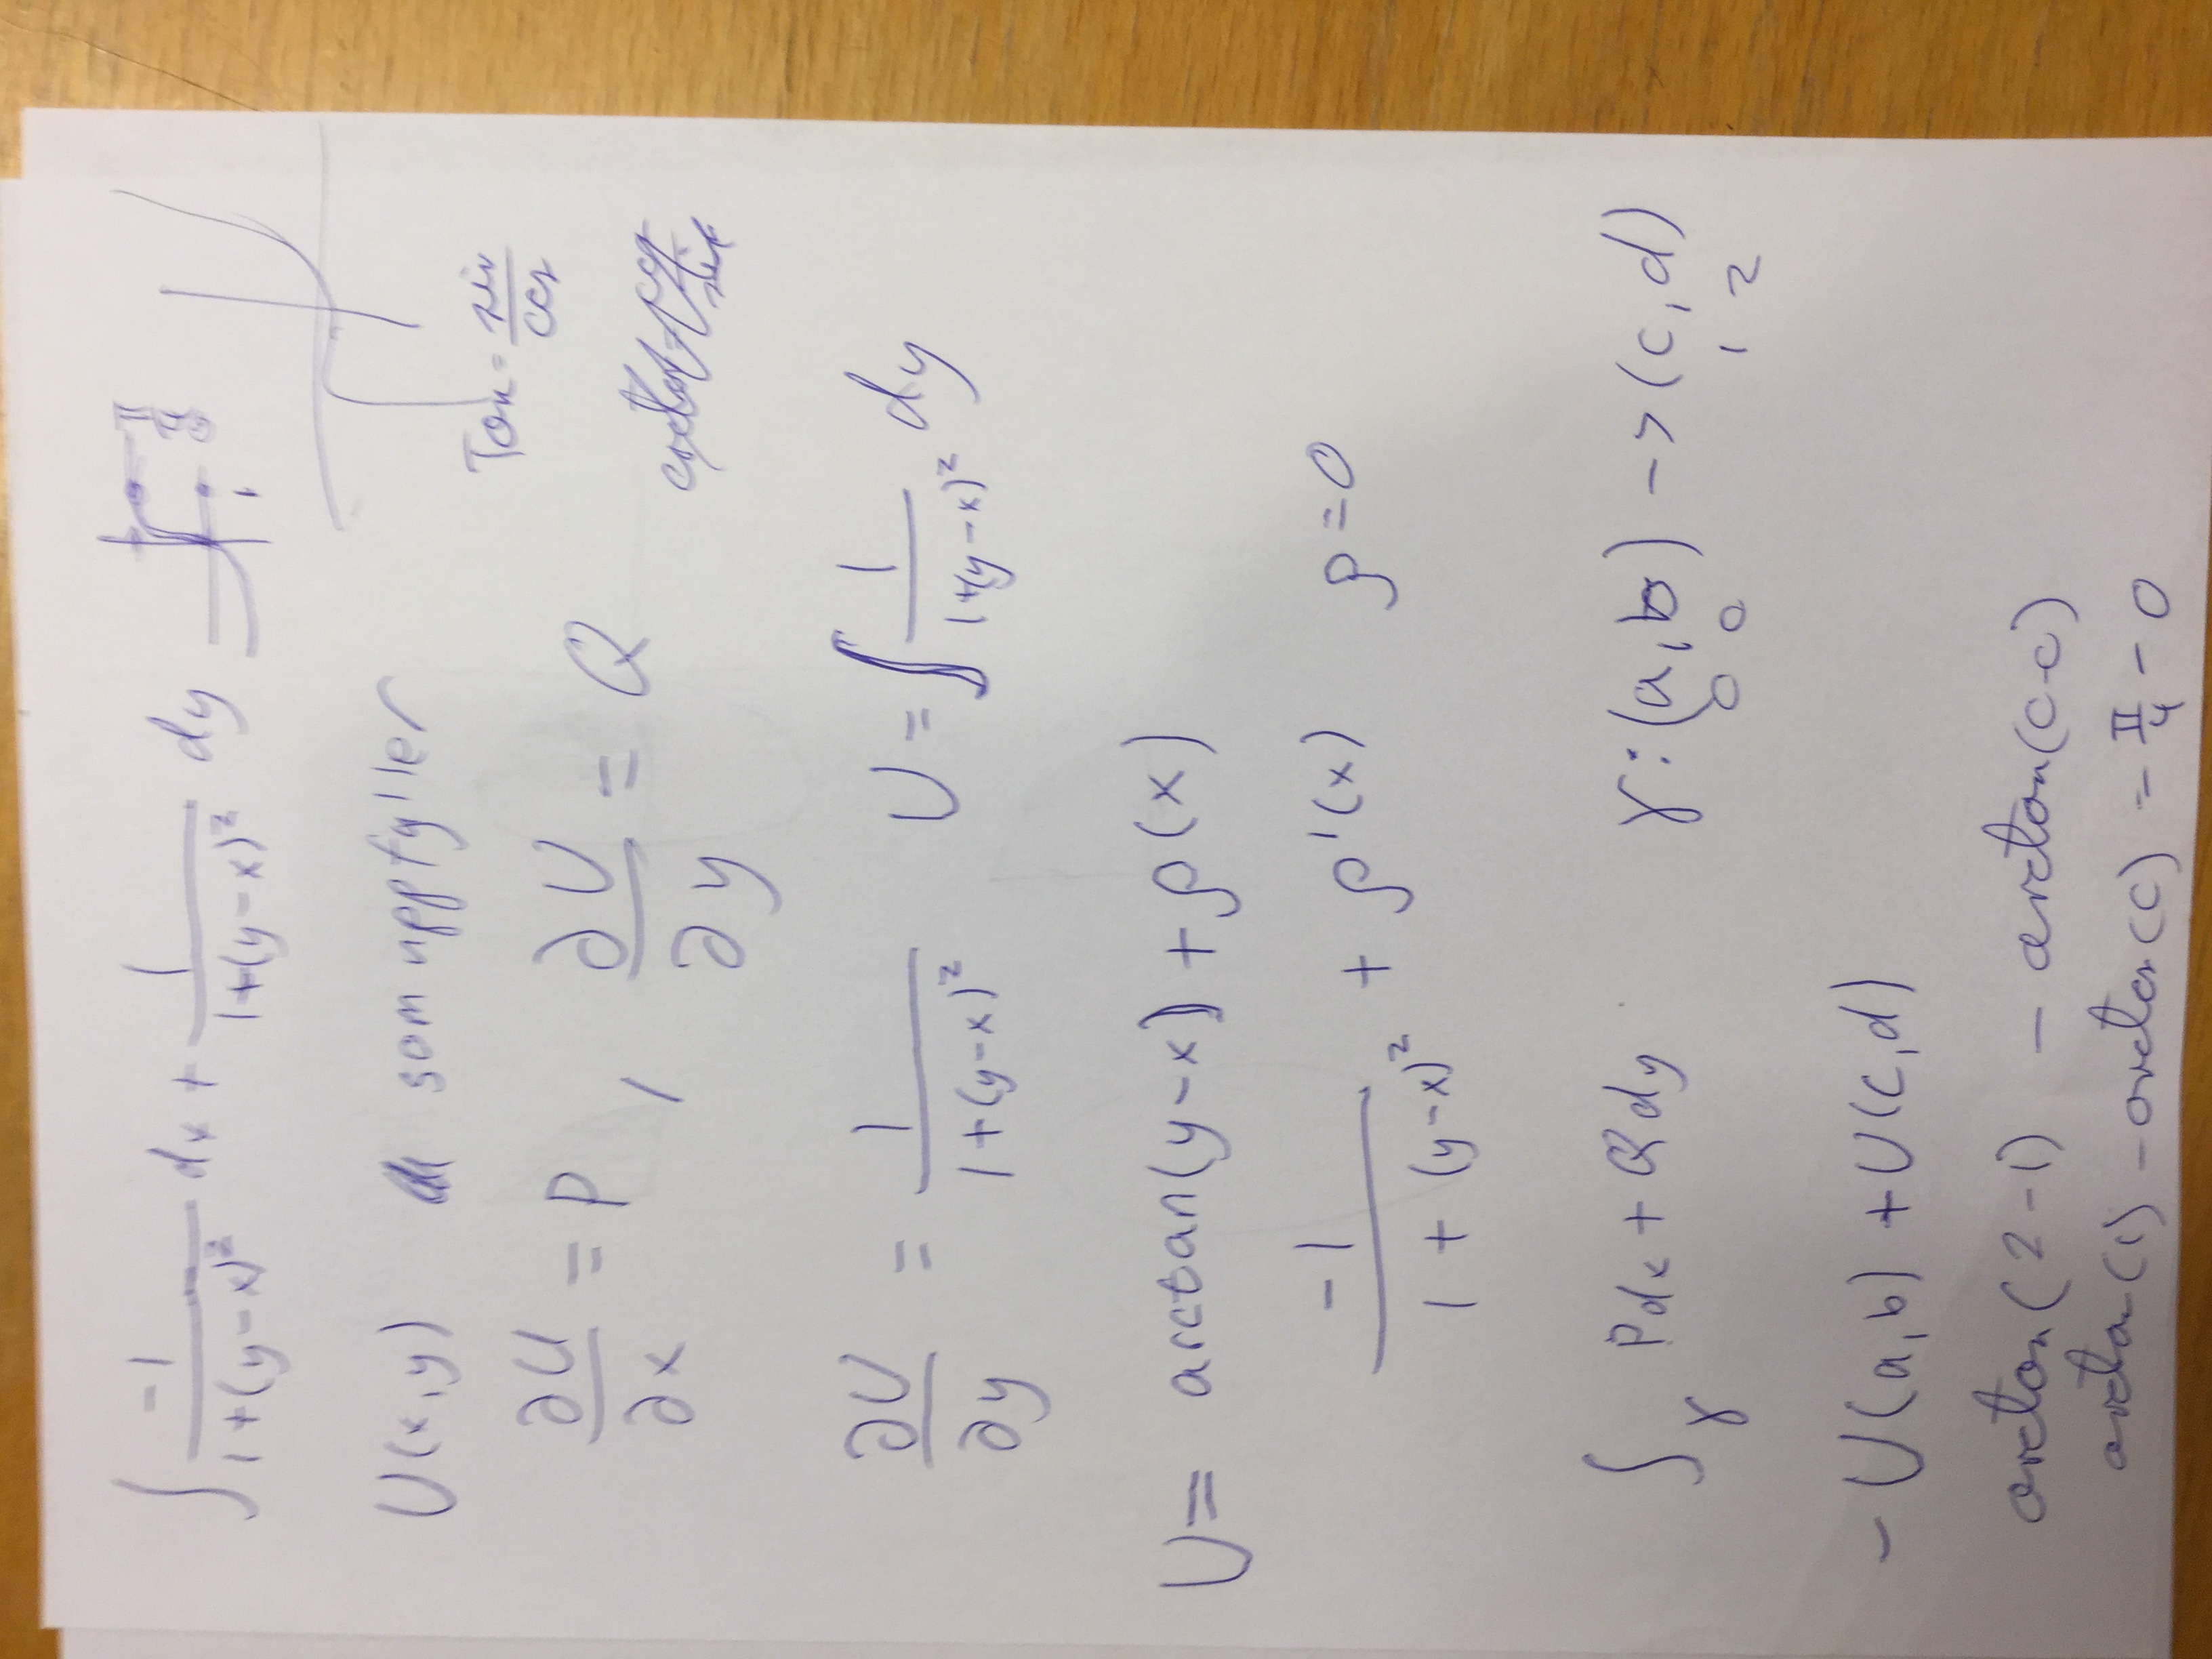 ∫ -1/(1+(y-x)²) dx + 1/(1+(y-x)²) dy
1
U(x,y) som uppfyller
Tan = sin/cos
∂U/∂x = P , ∂U/∂y = Q
∂U/∂y = 1/(1+(y-x)²) U = ∫ 1/(1+(y-x)²) dy
U = arctan(y-x) + ρ(x)
-1/(1 + (y-x)²) + ρ'(x) ρ=0
∫γ Pdx + Qdy γ: (a,b) -> (c,d)
0 0 1 2
- U(a,b) + U(c,d)
arctan(2-1) - arctan(0-0)
arctan(1) - arctan(0) = π/4 - 0